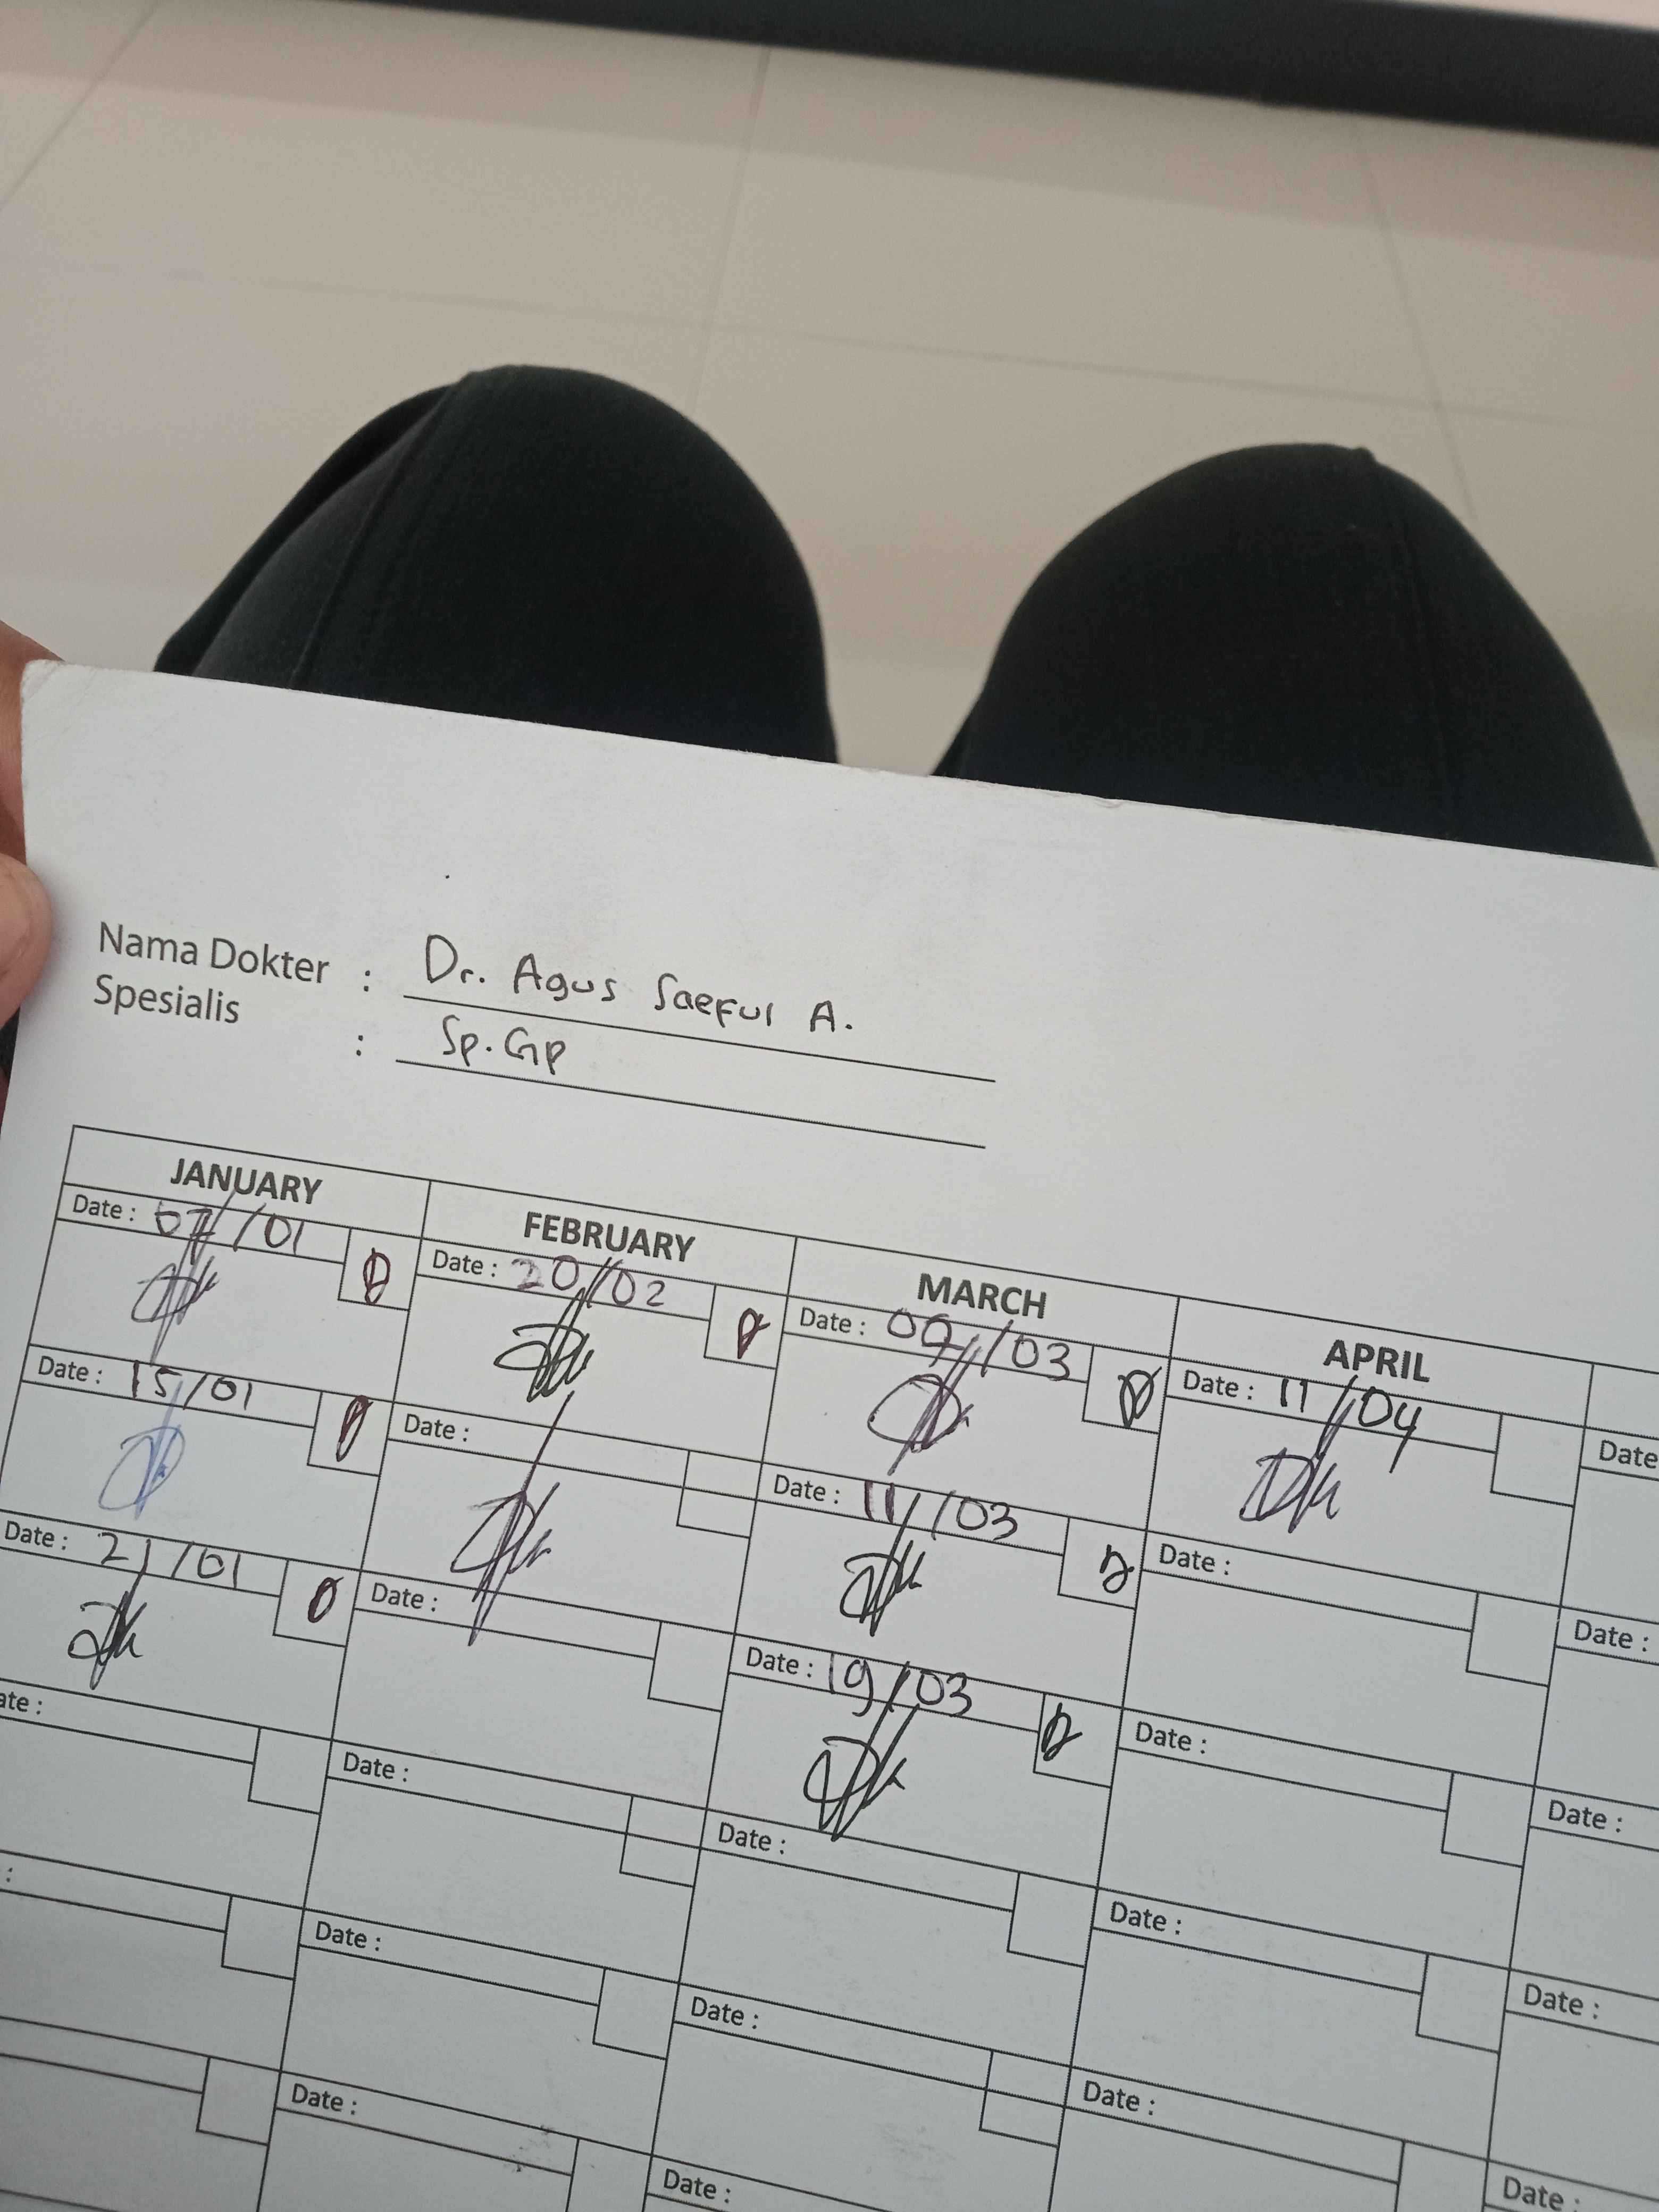 Nama Dokter : Dr. Agus Saeful A.
Spesialis : Sp.GP
JANUARY FEBRUARY MARCH APRIL
Date : 07/01
Date : 20/02
Date : 09/03
Date : 11/04
Date
Date : 15/01
Date :
Date : 11/03
Date :
Date :
Date : 21/01
Date :
Date : 19/03
Date :
Date :
ate :
Date :
Date :
Date :
Date :
:
Date :
Date :
Date :
Date :
Date :
Date :